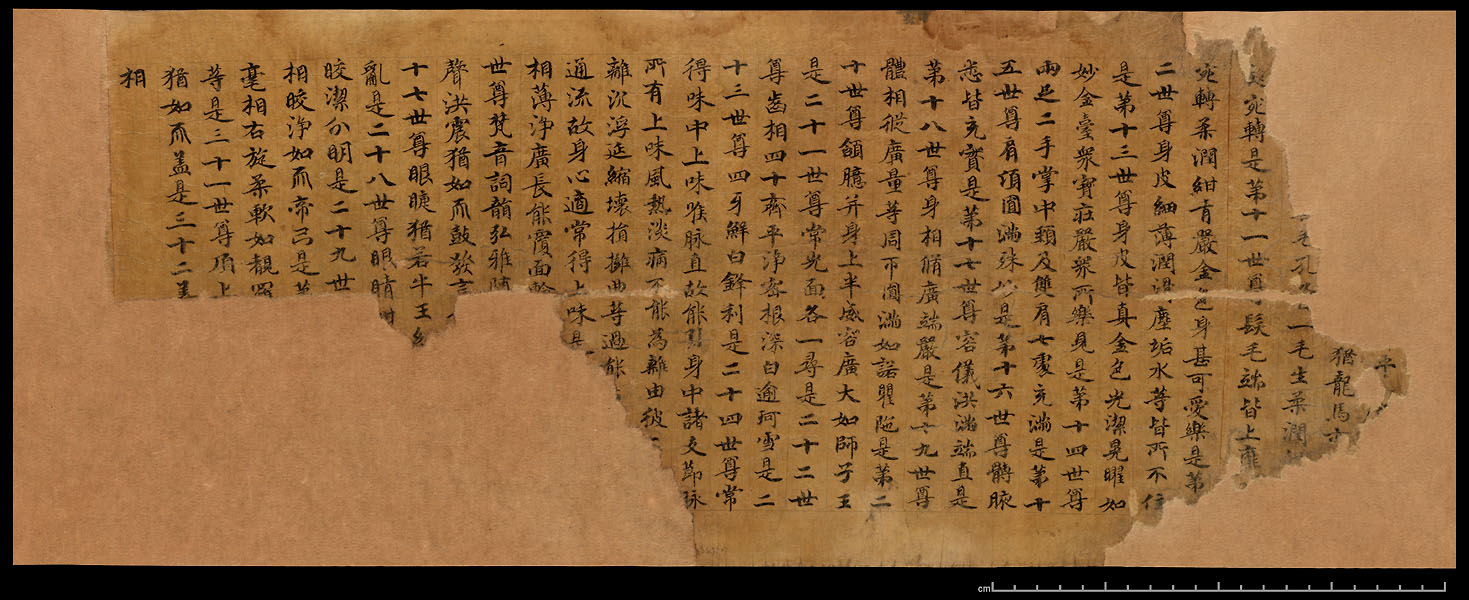 平
猶龍馬
毛孔一毛生柔潤
宛轉是第十一世尊髮毛端皆上靡
宛轉柔潤紺青嚴金色身甚可愛樂是第
二世尊身皮細薄潤滑塵垢水等皆所不住
是第十三世尊身皮皆真金色光潔晃曜如
妙金臺衆寶莊嚴衆所樂見是第十四世尊
兩足二手掌中頸及雙肩七處充滿是第十
五世尊肩項圓滿殊妙是第十六世尊髆腋
悉皆充實是第十七世尊容儀洪滿端直是
第十八世尊身相脩廣端嚴是第十九世尊
體相縱廣量等周帀圓滿如諾瞿陁是第二
十世尊頷臆并身上半威容廣大如師子王
是二十一世尊常光面各一尋是二十二世
尊齒相四十齊平淨密根深白逾珂雪是二
十三世尊四牙鮮白鋒利是二十四世尊常
得味中上味喉脉直故能引身中諸支節脉
所有上味風熱淡病不能為雜由彼
離沉浮延縮壞損擁曲等過能
通流故身心適常得上味是
相薄淨廣長能覆面輪
世尊梵音詞韻弘雅隨
聲洪震猶如而鼓發言
十七世尊眼睫猶若牛王紺
亂是二十八世尊眼睛紺
皎潔分明是二十九世
相皎淨如而帝弓是第
毫相右旋柔軟如覩羅
等是三十一世尊頂上
猶如而盖是三十二善
相